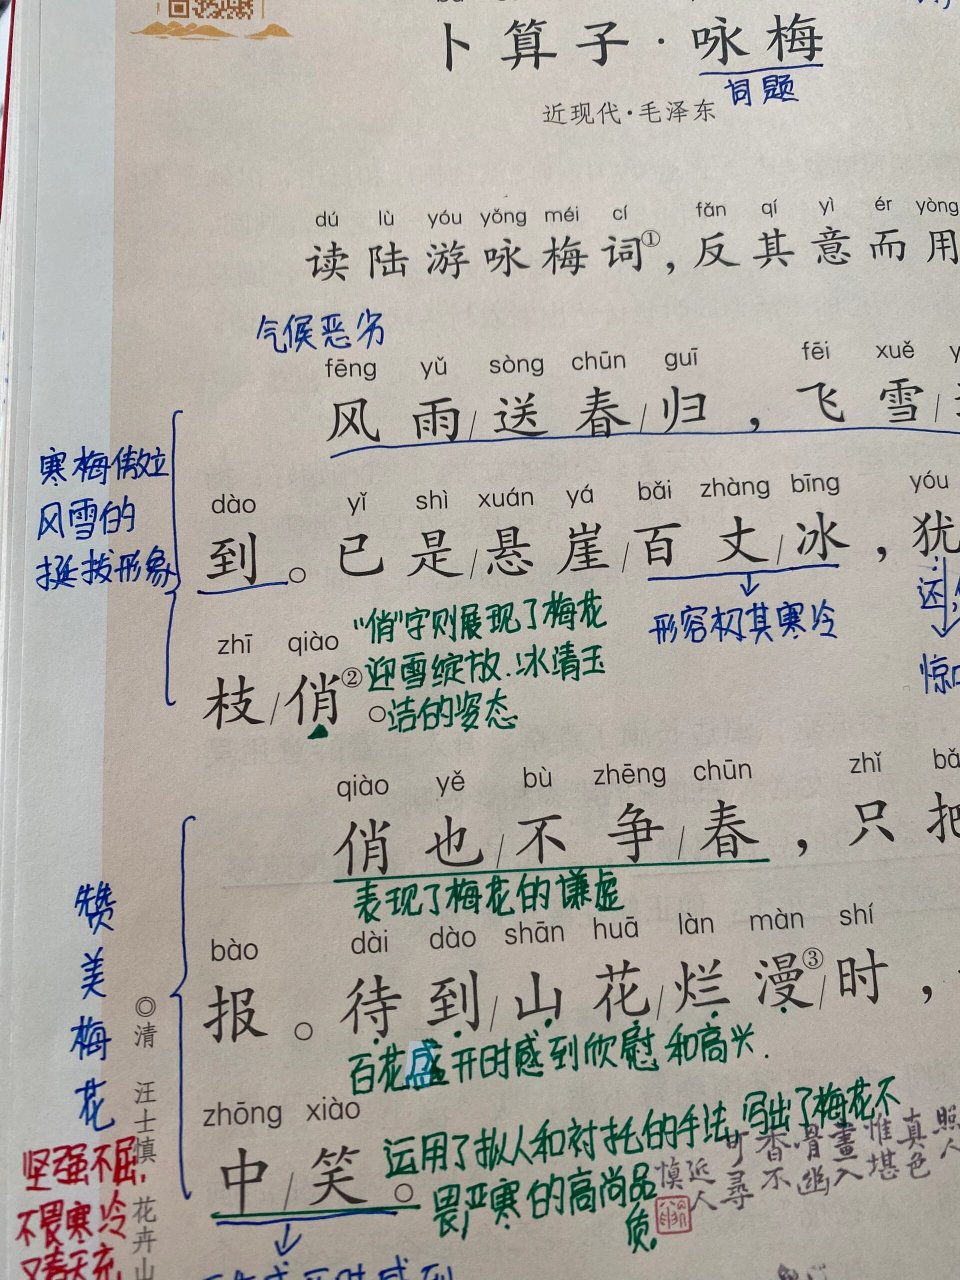 卜算子·咏梅
词题
近现代·毛泽东
dú lù yóu yǒng méi cí fǎn qí yì ér yòng
读陆游咏梅词①，反其意而用
气候恶劣
fēng yǔ sòng chūn guī fēi xuě
风雨/送春/归，飞雪/
寒梅傲立
风雪的
挺拔形象
dào yǐ shì xuán yá bǎi zhàng bīng yóu
到。已是/悬崖/百丈/冰，犹
形容极其寒冷
还
惊
zhī qiào
枝/俏②。
"俏"字则展现了梅花
迎雪绽放.冰清玉
洁的姿态
qiào yě bù zhēng chūn zhǐ bǎ
俏也/不争/春，只把
表现了梅花的谦虚
赞美梅花
bào dài dào shān huā làn màn shí
报。待到/山花/烂漫③/时，
百花盛开时感到欣慰和高兴.
zhōng xiào
中/笑。
运用了拟人和衬托的手法,写出了梅花不
畏严寒的高尚品
质.
坚强不屈,
不畏寒冷
◎清 汪士慎 花卉山